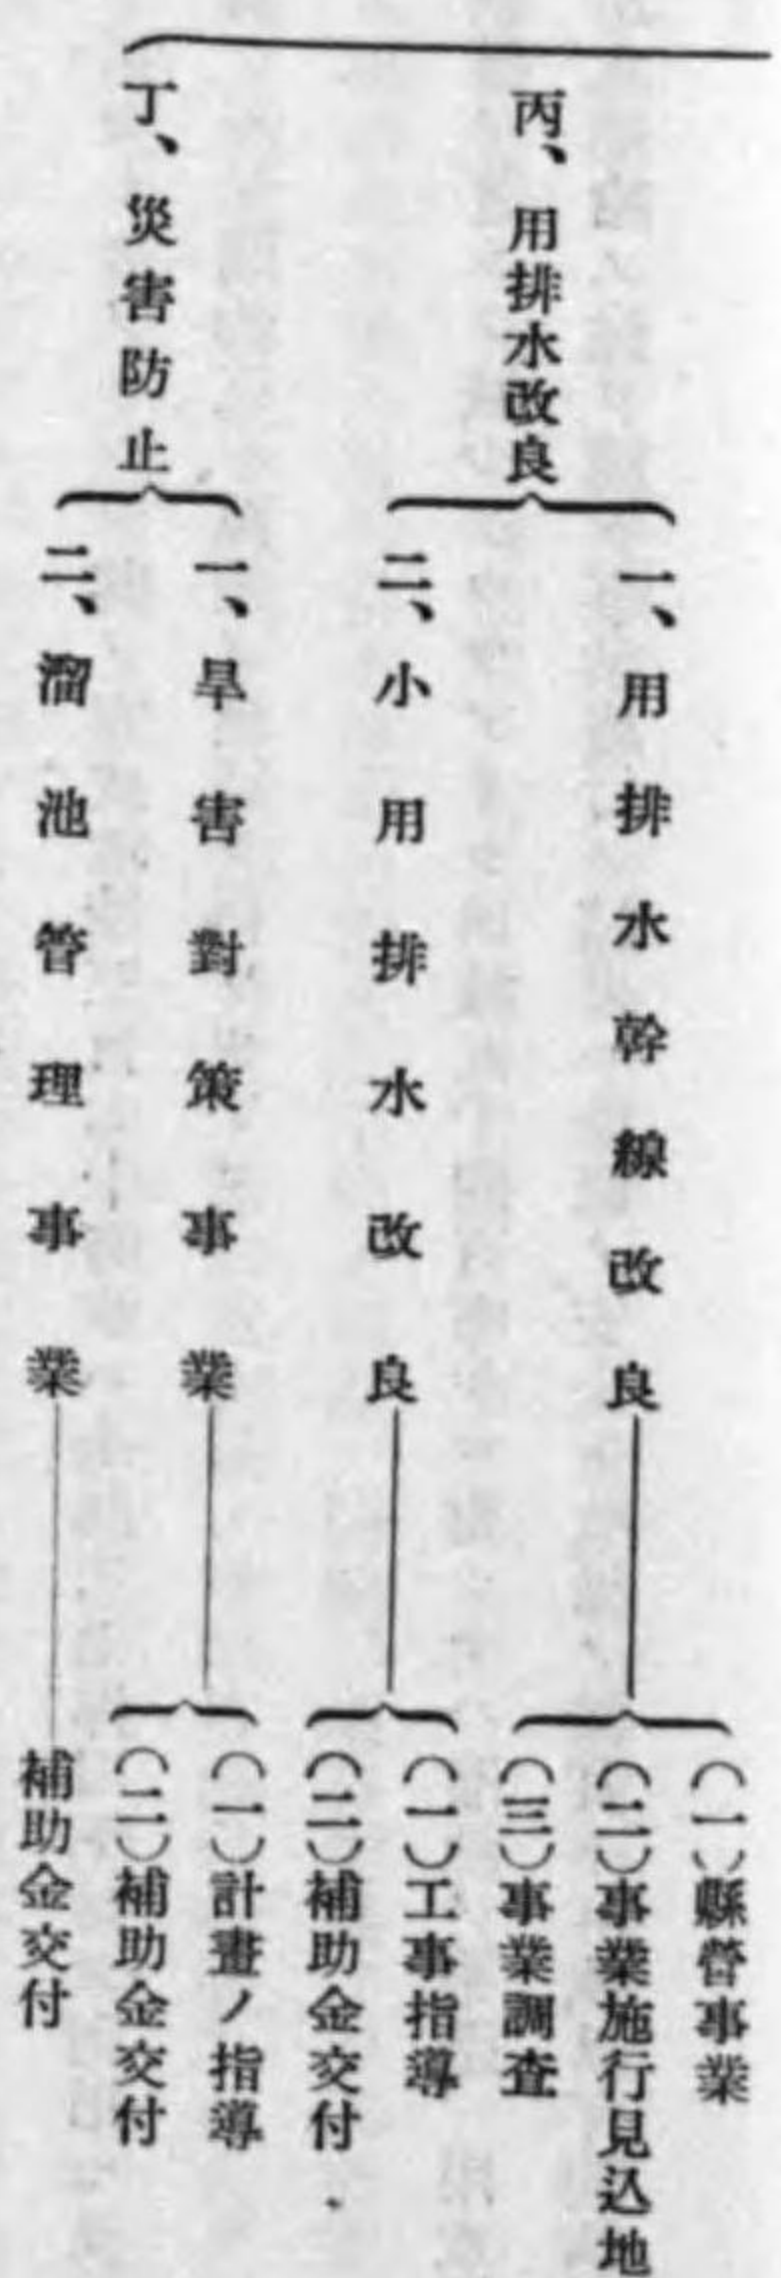 丙、用排水改良
一、用排水幹線改良
(一)縣營事業
(二)事業施行見込地
(三)事業調査
二、小用排水改良
(一)工事指導
(二)補助金交付
丁、災害防止
一、旱害對策事業
(一)計畫ノ指導
(二)補助金交付
二、溜池管理事業
補助金交付